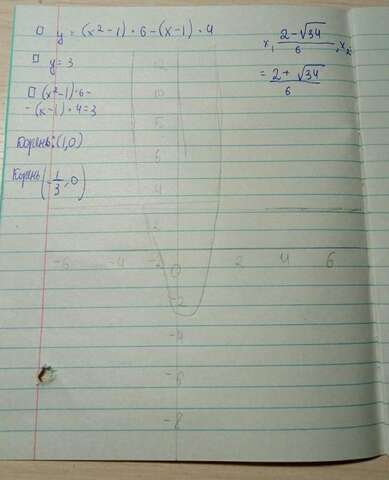 y = (x² - 1) · 6 - (x - 1) · 4
y = 3
(x² - 1) · 6 -
- (x - 1) · 4 = 3
Корень: (1,0)
Корень (-1/3, 0)
x₁ (2 - √34)/6, x₂
= (2 + √34)/6
12
10
6
4
2
-6 -4 -2 0 2 4 6
-2
-4
-6
-8